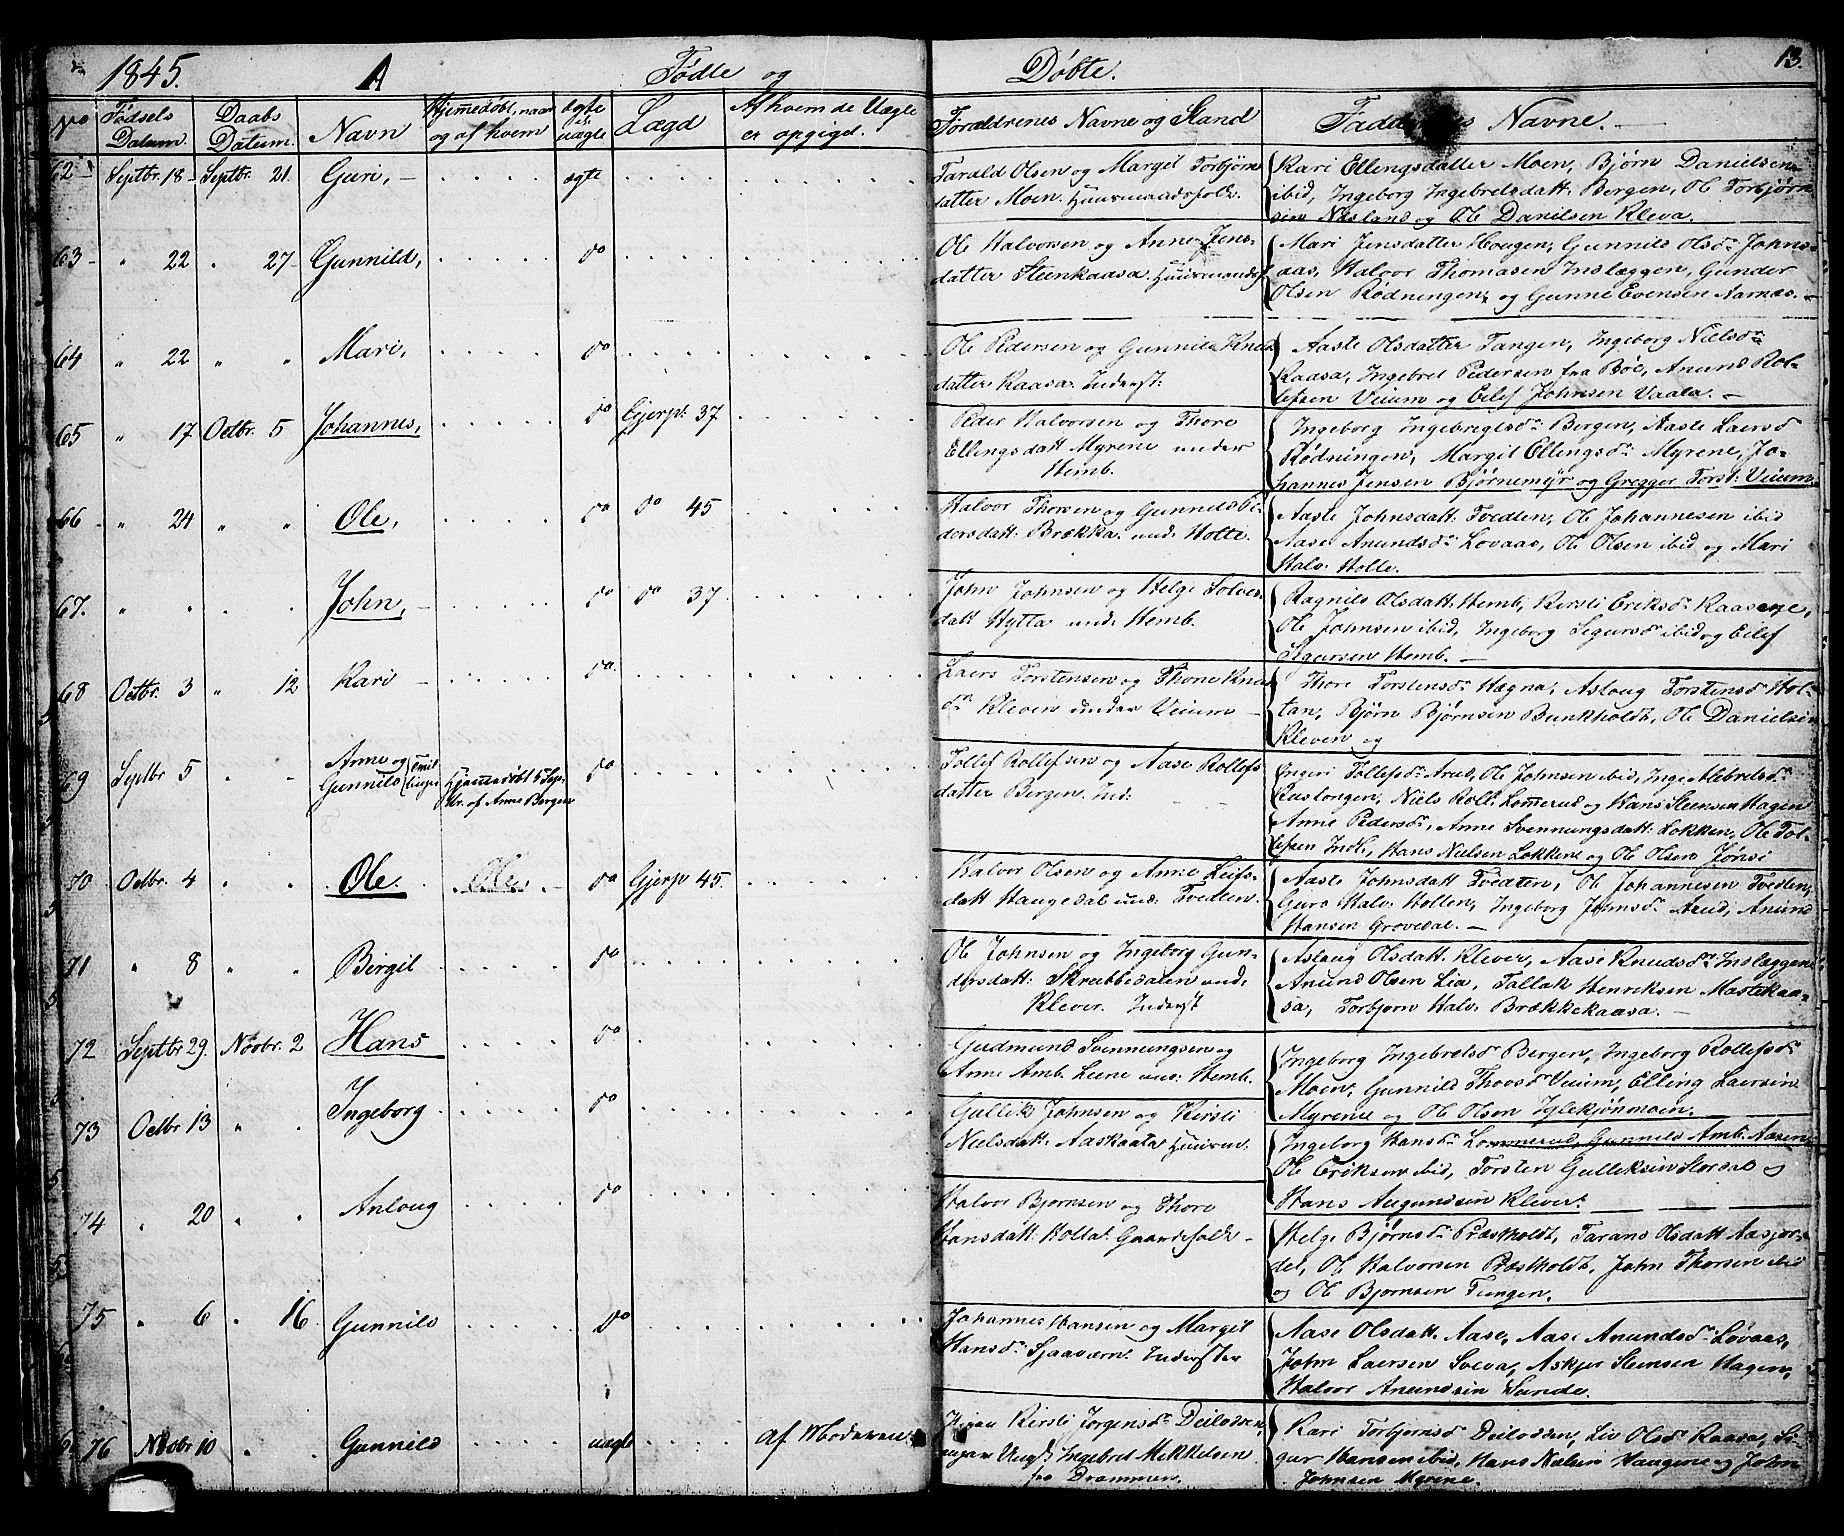 1845. A Fødte og Døbte. 13.
No Fødsels Datum. Daabs Datum. Navn Hjemmedøbt, naar og af hvem ægte el. uægte Lægd Af hvem de Uægte er opgivet. Forældrenes Navne og Stand Faddernes Navne.
62 Septbr. 18 Septbr. 21. Guri, ægte
Tarald Olsen og Margit Torbjørns
datter Moen. Huusmandsfolk.
Kari Ellingsdatter Moen, Bjørn Danielsen
ibid, Ingeborg Ingebretsdatt: Bergen, Ole Torbjørn
sen Næsland og Ole Danielsen Kleva.
63 " 22 " 27 Gunnild, do
Ole Halvorsen og Anne Jens-
datter Steenkaasa. Huusmandsf.
Mari Jensdatter Hougen, Gunnild Olsd. Johns-
aas, Halvor Thomasen Inslæggen, Gunder
Olsen Rødningen, og Gunne Evensen Aarnæs.
64 " 22 " " Mari, do
Ole Pedersen og Gunnild Knud
datter Kaasa. Inderst:
Aaste Olsdatter Tangen, Ingeborg Nielsd.
Kaasa, Ingebret Pedersen fra Bøe, Anund Rol-
lefsen Veium og Eilef Johnsen Vaala.
65 " 17 Octbr. 5 Johannes, do Gjerp. 37
Peder Halvorsen og Thore
Ellingsdatt Myrene under
Hemb.
Ingeborg Ingebregtsd. Bergen, Aaste Laersd
Rødningen, Margit Ellingsd. Myrene, Jo-
hannes Jensen Bjørnemyr og Gregger Torst: Veium
66 " 24 " " Ole, do do 45
Halvor Thorsen og Gunnild Pe-
dersdatt: Brækka. und: Holte.
Aaste Johnsdatt: Tvedten, Ole Johannesen ibid
Aase Anundsd. Lovaas, Ole Olsen ibid og Mari
Halv: Holte.
67. " " " " John, do do 37
John Johnsen og Helge Solves
datt Hytta und: Hemb.
Ragnild Olsdatt: Hemb, Kirsti Eriksd. Kaasene,
Ole Johnsen ibid, Ingeborg Segursd ibid og Eilef
Segursen Hemb.
68 Octbr. 3 " 12 Kari do
Laers Torstensen og Thone Knud
d. Kleven under Veium
Thore Torstensd. Hægna, Aslaug Torstensd Hol-
tan, Bjørn Bjørnsen Bunkholdt, Ole Danielsen
Kleven og
69 Septbr 5 " " Anne og Gunnild Hjemmedøbt 5 Sep-
tbr. af Anne Bergen do
Tollef Rollefsen og Aase Rollefs
datter Bergen. Ind:
Ingeri Tollefsd. Arud, Ole Johnsen ibid, Inge Alebretsd.
Raslongen, Niels Roll: Lommerud og Hans Steensen Hagen
Anne Pedersd., Anne Svennungsdatt: Løkken, Ole Tol-
lefsen Indl., Hans Nielsen Løkkene og Ole Olsen Jønsi
70 Octbr. 4 " " Ole. Ole do Gjerp 45.
Halvor Olsen og Anne Leifs-
datt Haugedal und: Tvedten.
Aaste Johnsdatt Tvedten, Ole Johannesen Tvedten,
Guro Halv: Holten, Ingeborg Johnsd. Aarud, Anund
Hansen Grovedal.
71 " 8 " " Birgit do
Ole Johnsen og Ingeborg Gun-
dersdatt: Skrubbedalen und.
Klever. Inderst
Aslaug Olsdatt. Klever, Aase Knudsd. Inslæggen
Anund Olsen Lia, Tallak Henriksen Mastekaa-
sa, Torbjørn Halv: Brækkekaasa.
72 Septbr 29. Novbr. 2 Hans do
Gudmund Svennungsen og
Anne Amb. Leene und: Hemb.
Ingeborg Ingebretsd. Bergen, Ingeborg Rollefsd.
Moen, Gunnild Thovsd. Veium, Elling Laersen
Myrene og Ole Olsen
73 Octbr 13 " " Ingeborg do
Gullik Johnsen og Kirsti
Nielsdatt: Aaskaata. Huusm.
Ingeborg Hansd. Lommerud, Gunnild Amb. Aasen
Ole Eriksen ibid, Torsten Gulliksen Stordal og
Hans Augundsen Klever.
74 " 20 " " Anlaug do
Halvor Bjørnsen og Thore
Hansdatt: Holta. Gaardsfolk
Helge Bjørnsd. Præstholdt, Taran Olsdatt Aasjor-
det, Ole Halvorsen Præstholdt, John Thorsen ibid
og Ole Bjørnsen Tungen.
75 " 6 " 16 Gunnild do
Johannes Hansen og Margit
Hansd. Sjaaværn. Inderster
Aase Olsdatt. Aase, Aase Anundsd. Lovaas,
John Laersen Sveva, Askjer Steensen Hagen,
Halvor Anundsen Sunde.
76 Novbr 10 " " Gunnild uægte Af Moderen
Pigen Kirsti Jørgensd. Deilodden
ungkar Ingebret Mikkelsen
fra Drammen.
Kari Torbjørnsd Deilodden, Liv Olsd. Kaasa, Si-
gur Hansen ibid, Hans Nielsen Haugene og John
Johnsen Myrene.